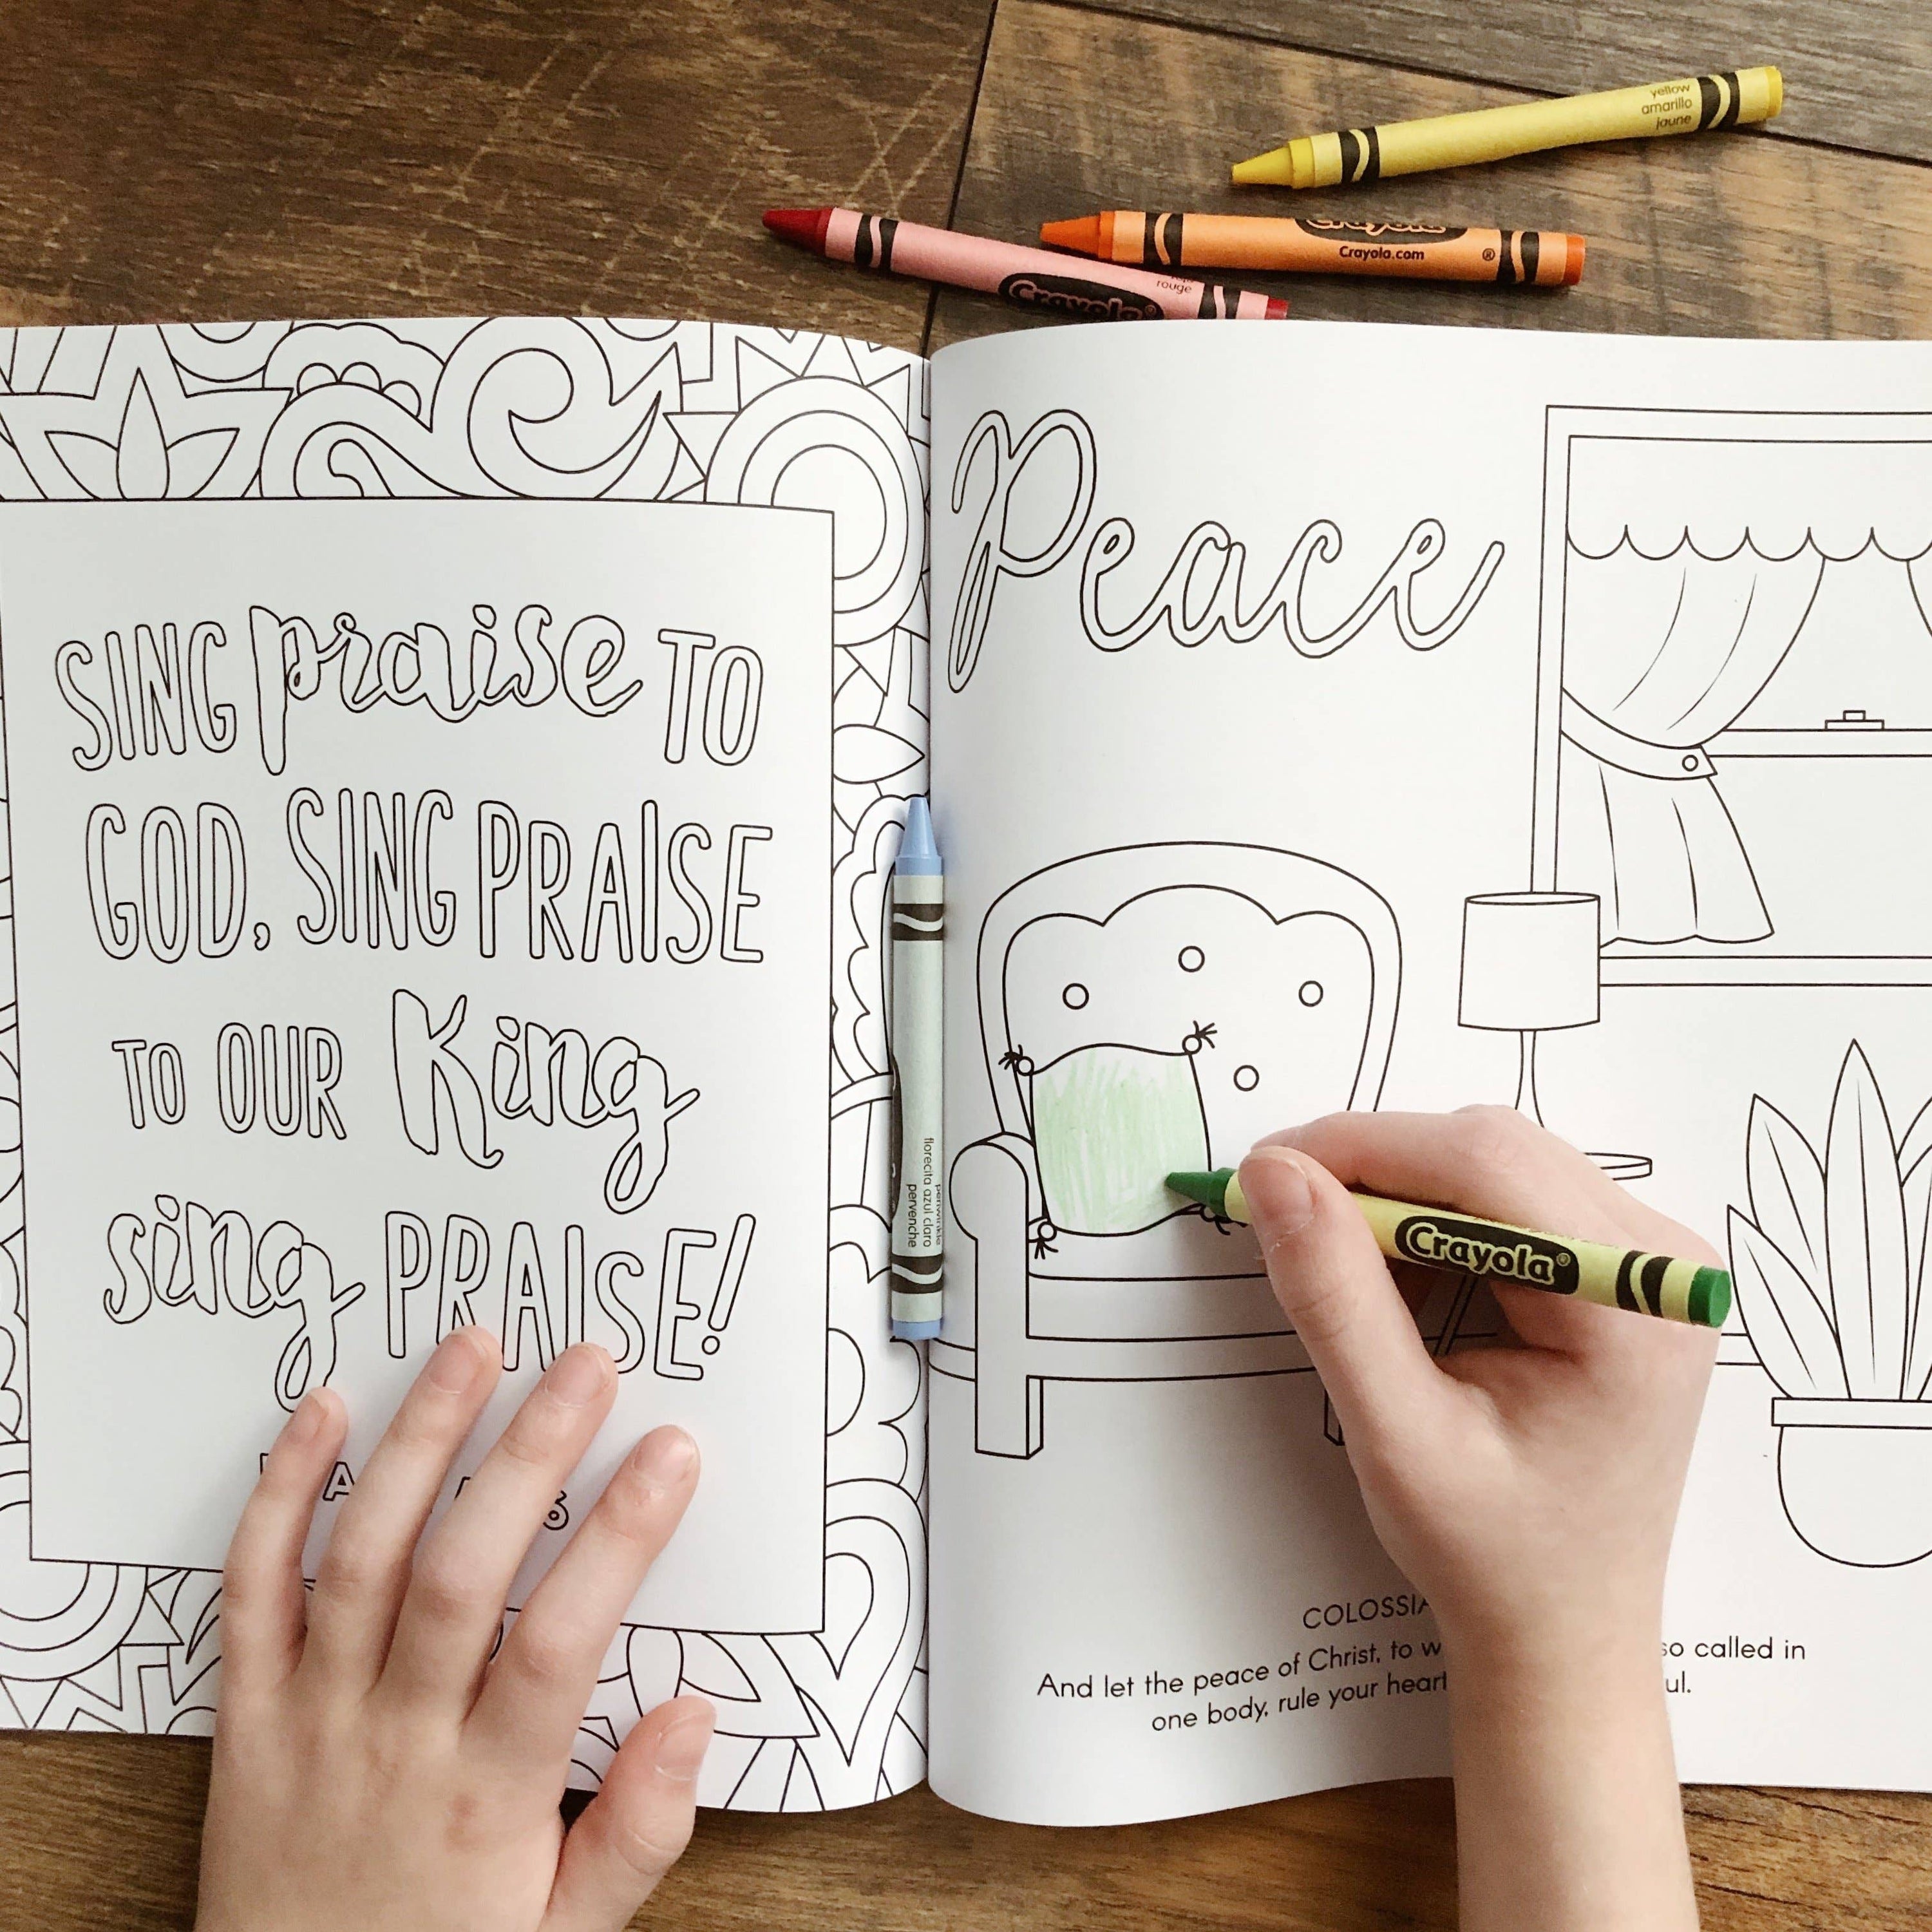 yellow
amarillo
jaune
Crayola
Crayola.com
®
rouge
Crayola®
SING praise TO
GOD, SING PRAISE
TO OUR King
sing PRAISE!
Peace
periwinkle
florecita azul claro
pervenche
Crayola®
And let the peace of Christ, to so called in
one body, rule your